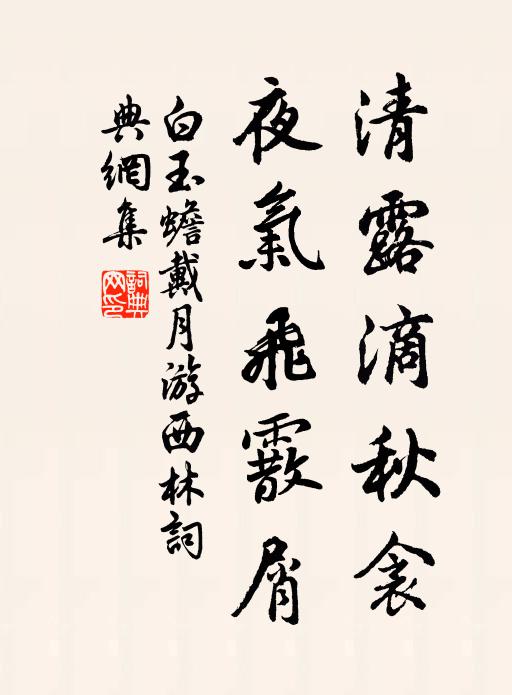 清露滴秋衾
夜氣飛霰屑
白玉蟾戴月游西林詞
典網集
詞典
网印